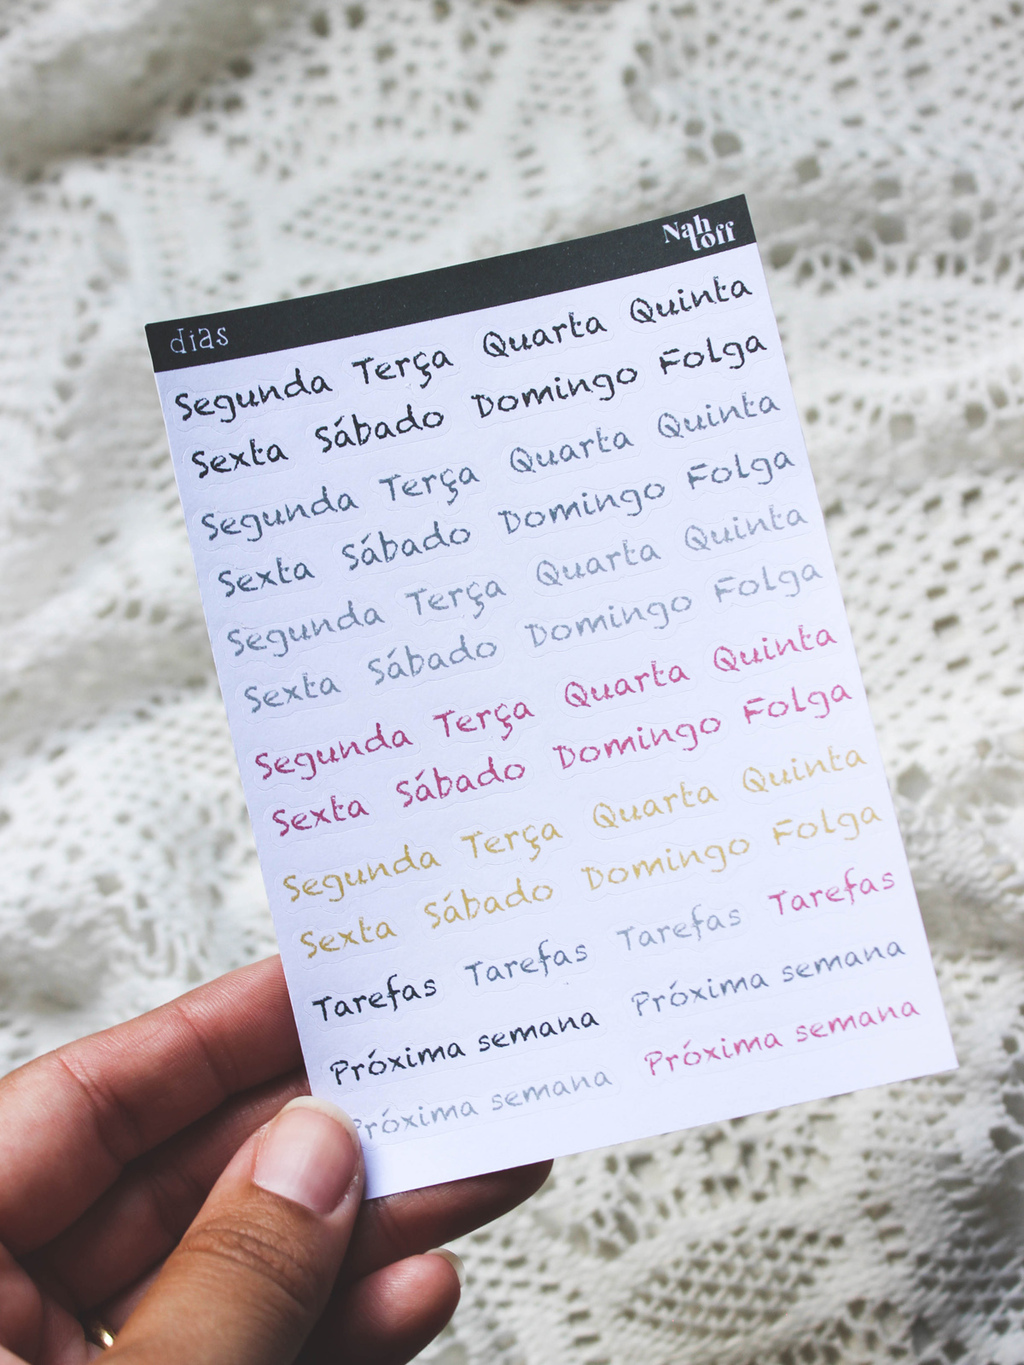 dias
Nah
toff
Segunda Terça Quarta Quinta
Sexta Sábado Domingo Folga
Segunda Terça Quarta Quinta
Sexta Sábado Domingo Folga
Segunda Terça Quarta Quinta
Sexta Sábado Domingo Folga
Segunda Terça Quarta Quinta
Sexta Sábado Domingo Folga
Segunda Terça Quarta Quinta
Sexta Sábado Domingo Folga
Tarefas Tarefas Tarefas Tarefas
Próxima semana Próxima semana
Próxima semana Próxima semana